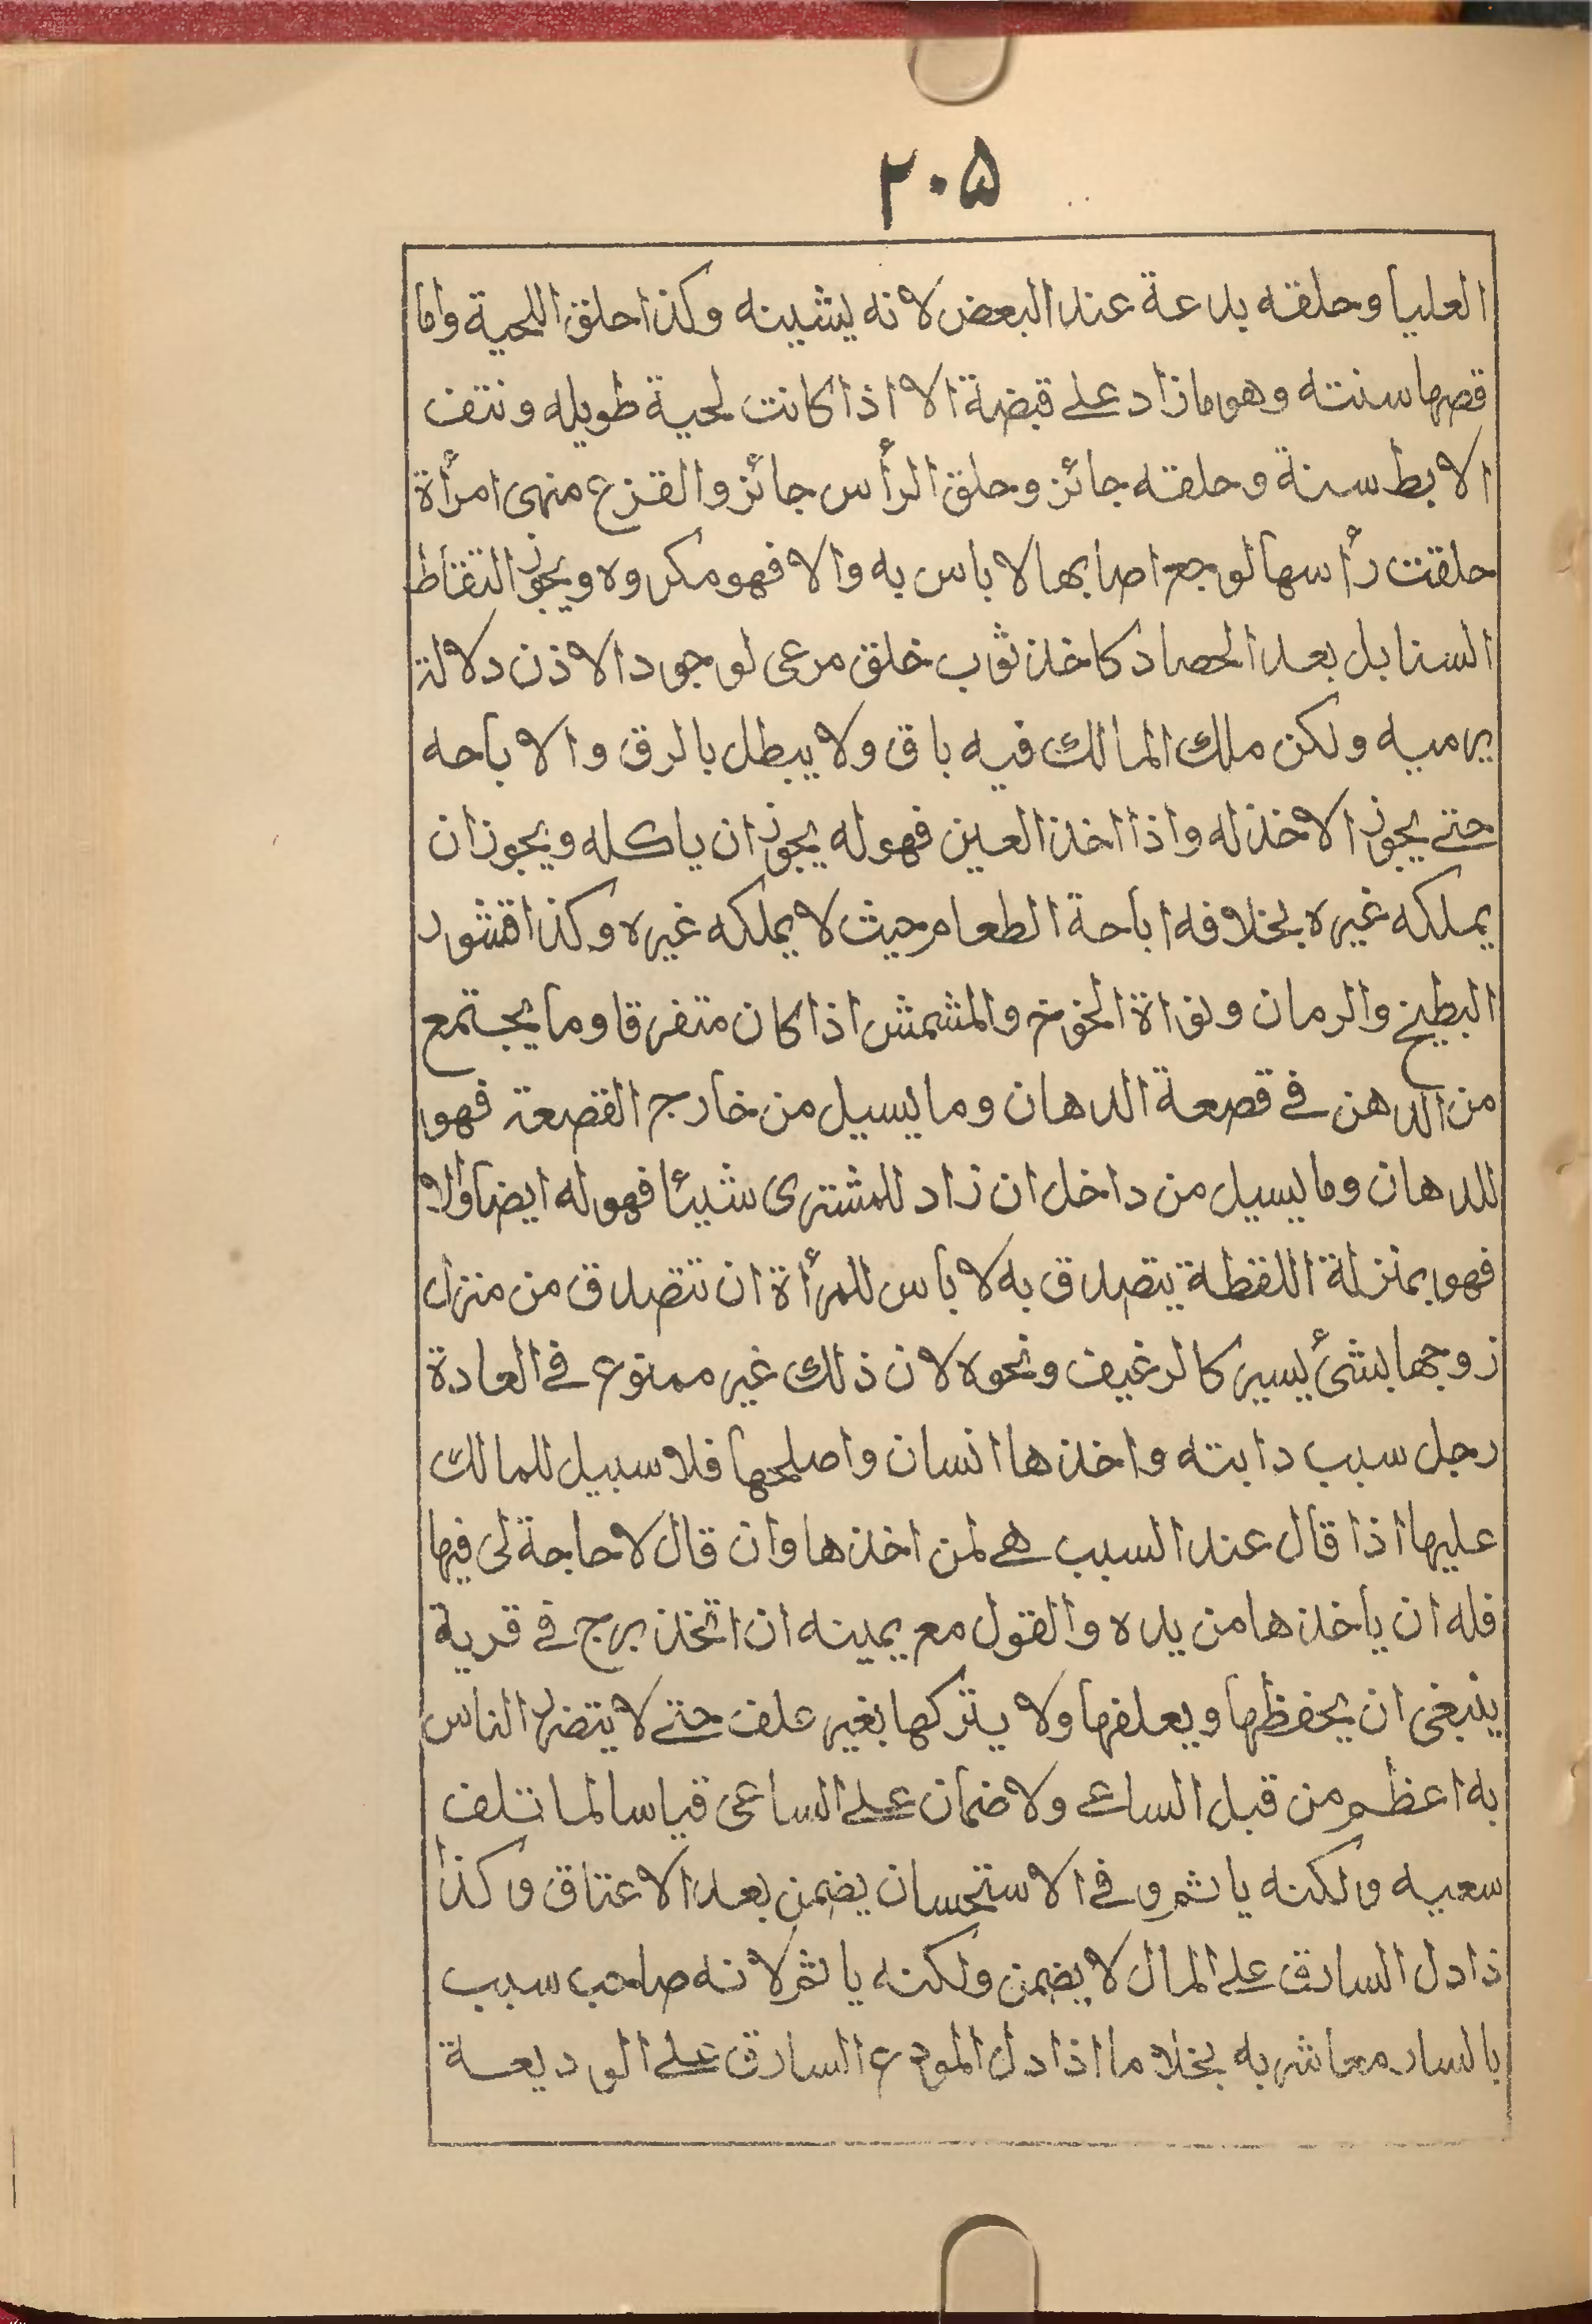 ٢٠٥
العليا وحلقه بدعة عند البعض لانه يشينه وكذا حلق اللحية واما
قصها سنته وهو ما زاد على قبضة الا اذا كانت لحية طويله ونتف
الابط سنة وحلقه جائز وحلق الرأس جائز والقزع منهى امرأة
حلقت رأسها لوجع اصابها لا باس به والا فهو مكروه ويجوز التقاط
السنابل بعد الحصاد كاخذ ثوب خلق مرعى لوجود الاذن دلالة
يرميه ولكن ملك المالك فيه باق ولا يبطل بالرق والاباحه
حتے يجوز الاخذ له واذا اخذ العين فهو له يجوز ان ياكله ويجوز ان
يملكه غيره بخلافه اباحة الطعام حيث لا يملكه غيره وكذا قشور
البطيخ والرمان ونواة الخوخ والمشمش اذا كان متفرقا وما يجتمع
من الدهن فے قصعة الدهان وما يسيل من خارج القصعة فهو
للدهان وما يسيل من داخل ان زاد للمشترى شيئا فهو له ايضا والا
فهو بمنزلة اللقطة يتصدق به لا باس للمرأة ان تتصدق من منزل
زوجها بشئ يسير كالرغيف ونحوه لان ذلك غير ممنوع فے العادة
رجل سبب دابته واخذها انسان واصلحها فلا سبيل للمالك
عليها اذا قال عند السبب هے لمن اخذها وان قال لا حاجة لى فيها
فله ان ياخذها من يده والقول مع يمينه ان اتخذ برج فے قرية
ينبغى ان يحفظها ويعلفها ولا يتركها بغير علف حتے لا يتضر الناس
به اعظم من قبل الساعے ولا ضمان علے الساعى قياسا لما تلف
سعيه ولكنه ياثم وفے الاستحسان يضمن بعد الاعتاق وكذا
ذا دل السارق علے المال لا يضمن ولكنه ياثم لانه صاحب سبب
بالسار معاشر به بخلا ما اذا دل المودع السارق علے الوديعة